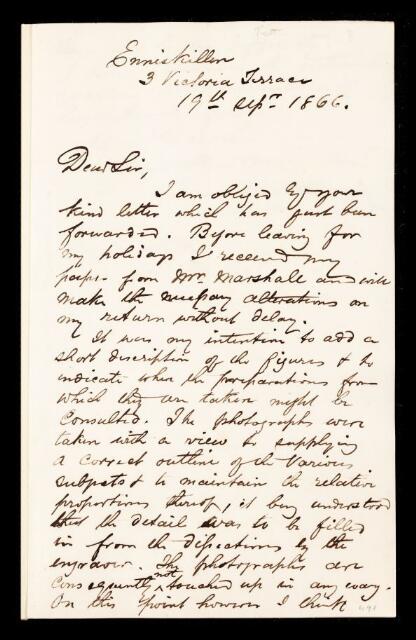 Enniskillen
3 Victoria Terrace
19th Sepr 1866.
Dear Sir,
I am obliged by your
kind letter which has just been
forwarded. Before leaving for
my holidays I received my
paper from Mr. Marshall and will
make the necessary alterations on
my return without delay.
It was my intention to add a
short description of the figures & to
indicate where the preparations from
which they are taken might be
consulted. The photographs were
taken with a view to supplying
a correct outline of the various
subjects & to maintain the relative
proportions thereof, it being understood
that the detail was to be filled
in from the dissections by the
engraver. The photographs are
consequently not touched up in any way.
On this point however I think